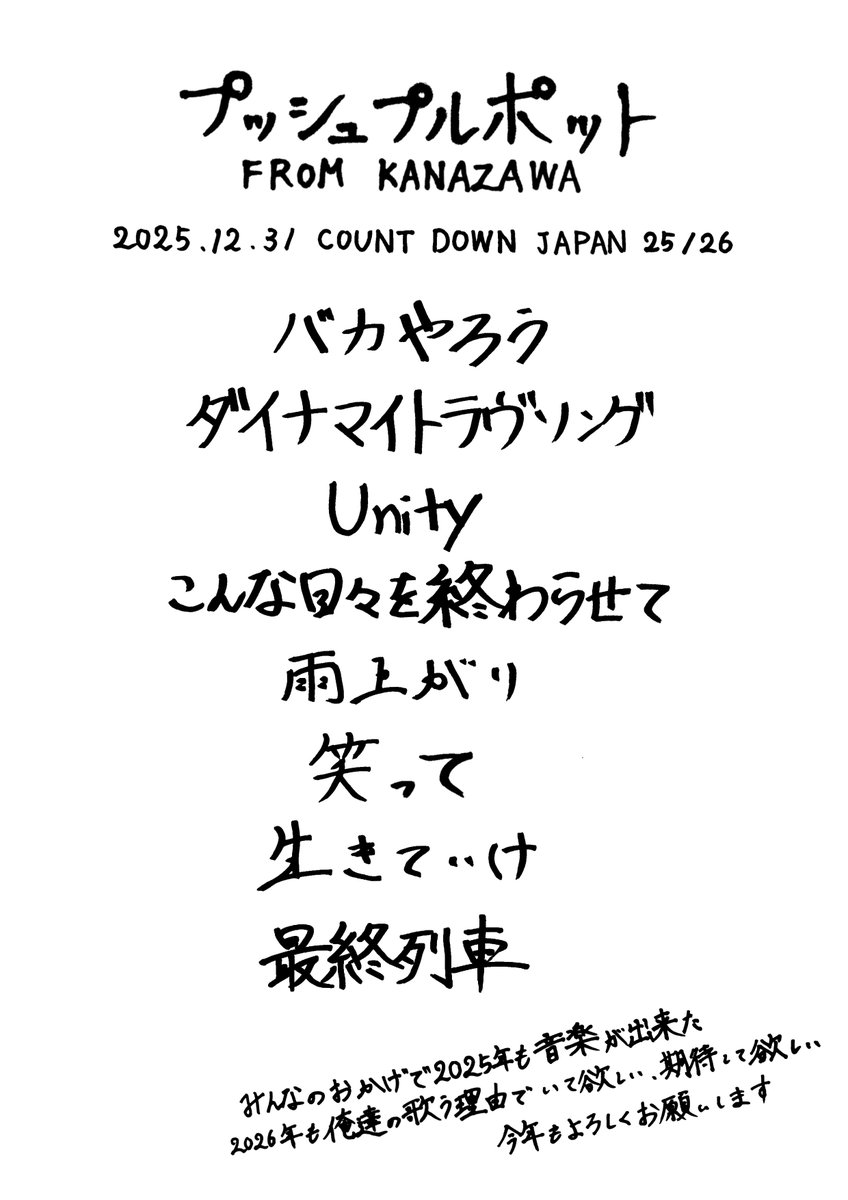 プッシュプルポット
FROM KANAZAWA
2025.12.31 COUNT DOWN JAPAN 25/26
バカやろう
ダイナマイトラヴソング
Unity
こんな日々を終わらせて
雨上がり
笑って
生きていけ
最終列車
みんなのおかげで2025年も音楽が出来た
2026年も俺達の歌う理由でいて欲しい、期待して欲しい
今年もよろしくお願いします